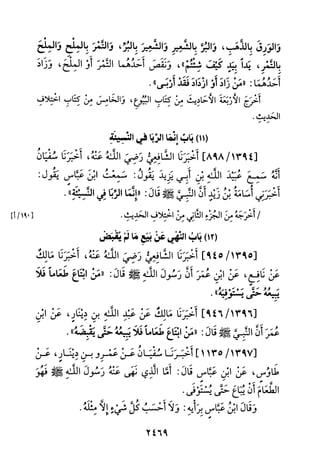 وَالوَرِقَ بِالذَّهَبِ، وَالبُرَّ بِالشَّعِيرِ وَالشَّعِيرَ بِالبُرِّ، وَالتَّمْرَ بِالمِلْحِ وَالمِلْحَ
بِالتَّمْرِ، يَداً بِيَدٍ كَيْفَ شِئْتُمْ»، وَنَقَصَ أَحَدُهُما التَّمْرَ أَوْ المِلْحَ، وَزَادَ
أَحَدُهُمَا: «مَنْ زَادَ أَوْ ازْدَادَ فَقَدْ أَرْبَى».
أَخْرَجَ الأَرْبَعَةَ الأَحَادِيثَ مِنْ كِتَابِ البُيُوعِ، وَالخَامِسَ مِنْ كِتَابِ اخْتِلافِ
الحَدِيثِ.
(١١) بَابُ إِنَّمَا الرِّبَا فِي النَّسِيئَةِ
[٨٩٨/١٣٩٤] أَخْبَرَنَا الشَّافِعِيُّ رَضِيَ اللَّـهُ عَنْهُ، أَخْبَرَنَا سُفْيَانُ
أَنَّهُ سَمِعَ عُبَيْدَ اللَّـهِ بْنِ أَبِي يَزِيدَ يَقُولُ: سَمِعْتُ ابْنَ عَبَّاسٍ يَقُولُ:
أَخْبَرَنِي أُسَامَةُ بْنُ زَيْدٍ أَنَّ النَّبِيَّ ﷺ قَالَ: «إِنَّمَا الرِّبَا فِي النَّسِيئَةِ».
/ أَخْرَجَهُ مِنَ الجُزْءِ الثَّانِي مِنْ اخْتِلافِ الحَدِيثِ. [١٩٠/أ]
(١٢) بَابُ النَّهْيِ عَنْ بَيْعِ مَا لَمْ يُقْبَضْ
[٩٤٥/١٣٩٥] أَخْبَرَنَا الشَّافِعِيُّ رَضِيَ اللَّـهُ عَنْهُ، أَخْبَرَنَا مَالِكٌ
عَنْ نَافِعٍ، عَنْ ابْنِ عُمَرَ أَنَّ رَسُولَ اللَّـهِ ﷺ قَالَ: «مَنْ ابْتَاعَ طَعَاماً فَلَا
يَبِيعُهُ حَتَّى يَسْتَوْفِيَهُ».
[٩٤٦/١٣٩٦] أَخْبَرَنَا مَالِكٌ عَنْ عَبْدِ اللَّـهِ بنِ دِيْنَارٍ، عَنْ ابْنِ
عُمَرَ أَنَّ النَّبِيَّ ﷺ قَالَ: «مَنْ ابْتَاعَ طَعَاماً فَلَا يَبِيعُهُ حَتَّى يَقْبِضَهُ».
[١١٣٥/١٣٩٧] أَخْبَرَنَا سُفْيَانُ عَنْ عَمْرِو بـنِ دِيْنَـارٍ، عَـنْ
طَاوُسٍ، عَنْ ابْنِ عَبَّاسٍ قَالَ: أَمَّا الَّذِي نَهَى عَنْهُ رَسُولَ اللَّـهِ ﷺ فَهُوَ
الطَّعَامُ أَنْ يُبَاعَ حَتَّى يُسْتَوْفَى.
وَقَالَ ابْنُ عَبَّاسٍ بِرَأْيِهِ: وَلَا أَحْسَبُ كُلَّ شَيْءٍ إِلَّا مِثْلَهُ.
٢٤٦٩